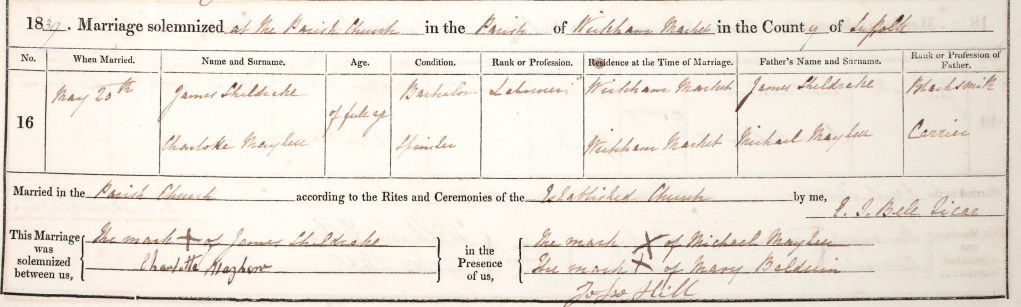 1839. Marriage solemnized at the Parish Church in the Parish of Wickham Market in the County of Suffolk
No. When Married. Name and Surname. Age. Condition. Rank or Profession. Residence at the Time of Marriage. Father's Name and Surname. Rank or Profession of Father.
16 May 20th James Sheldrake of full age Bachelor Labourer Wickham Market James Sheldrake Blacksmith
Charlotte Mayhew Spinster Wickham Market Michael Mayhew Carrier
Married in the Parish Church according to the Rites and Ceremonies of the Established Church by me,
Bell Vicar
This Marriage was solemnized between us, The mark X of James Sheldrake
Charlotte Mayhew
in the Presence of us, The mark X of Michael Mayhew
The mark X of Mary Baldwin
Hill